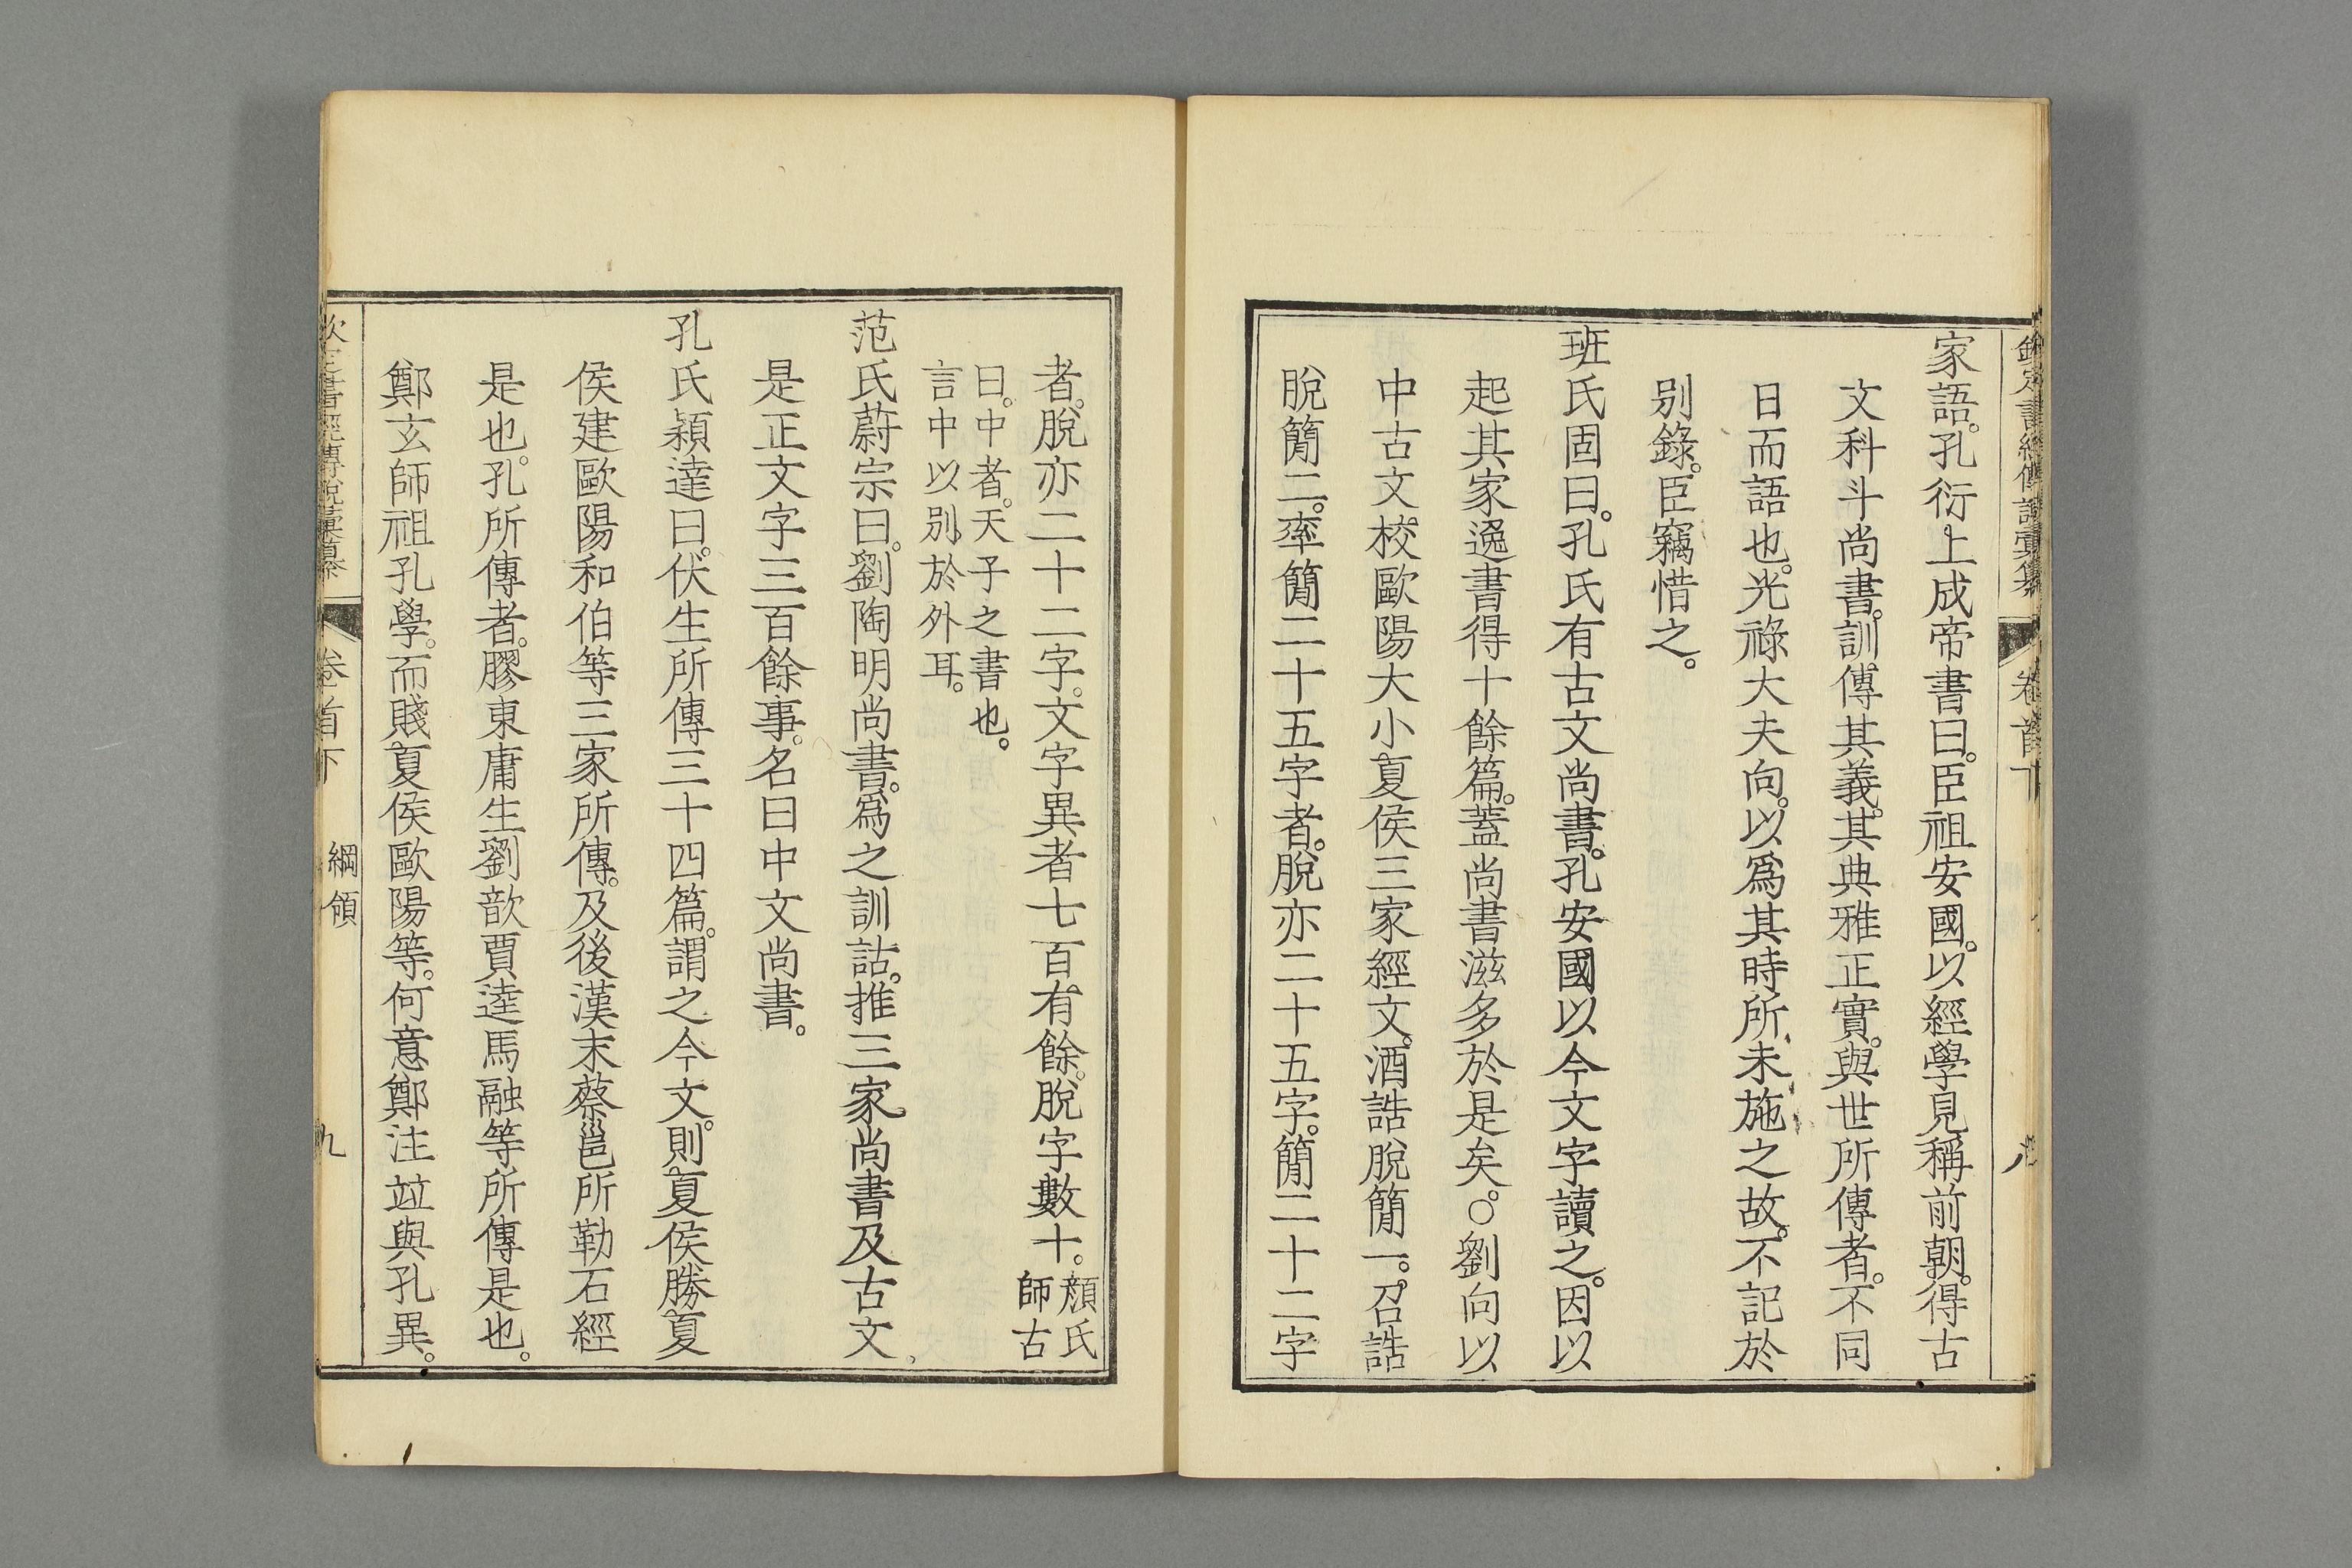 欽定書經傳說彙纂 卷首下 八
家語。孔衍上成帝書曰。臣祖安國。以經學見稱前朝。得古
文科斗尚書。訓傳其義。其典雅正實。與世所傳者。不同
日而語也。光祿大夫向。以爲其時所未施之故。不記於
別錄。臣竊惜之。
班氏固曰。孔氏有古文尚書。孔安國以今文字讀之。因以
起其家逸書得十餘篇。蓋尚書滋多於是矣。○劉向以
中古文校歐陽大小夏侯三家經文。酒誥脫簡一。召誥
脫簡二。率簡二十五字者。脫亦二十五字。簡二十二字
者。脫亦二十二字。文字異者七百有餘。脫字數十。顏氏師古
曰。中者。天子之書也。
言中以別於外耳。
范氏蔚宗曰。劉陶明尚書。爲之訓詁。推三家尚書及古文
是正文字三百餘事。名曰中文尚書。
孔氏穎達曰。伏生所傳三十四篇。謂之今文。則夏侯勝夏
侯建歐陽和伯等三家所傳。及後漢末蔡邕所勒石經
是也。孔所傳者。膠東庸生劉歆賈逵馬融等所傳是也。
鄭玄師祖孔學。而賤夏侯歐陽等。何意鄭注竝與孔異。
欽定書經傳說彙纂 卷首下 綱領 九